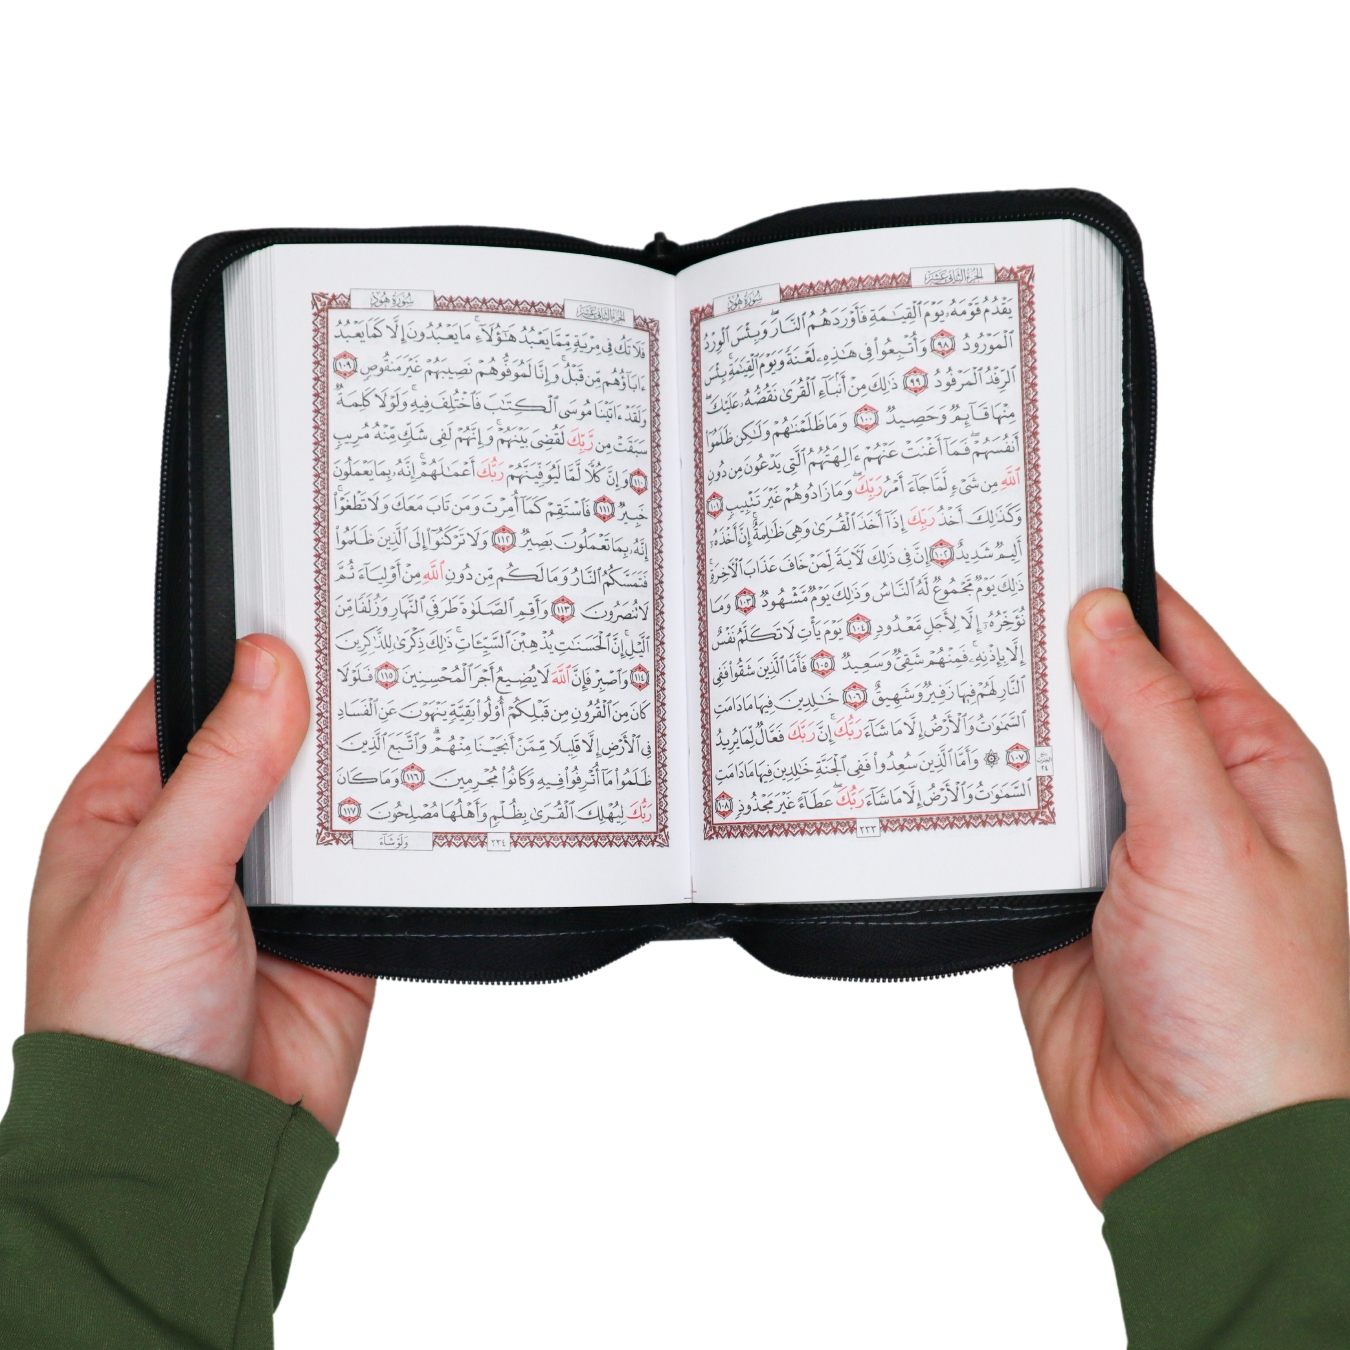 سُورَةُ هُودٍ
الجُزءُ الثَّانِي عَشَرَ
يَقْدُمُ قَوْمَهُۥ يَوْمَ ٱلْقِيَـٰمَةِ فَأَوْرَدَهُمُ ٱلنَّارَ ۖ وَبِئْسَ ٱلْوِرْدُ
ٱلْمَوْرُودُ ٩٨ وَأُتْبِعُوا۟ فِى هَـٰذِهِۦ لَعْنَةً وَيَوْمَ ٱلْقِيَـٰمَةِ ۚ بِئْسَ
ٱلرِّفْدُ ٱلْمَرْفُودُ ٩٩ ذَٰلِكَ مِنْ أَنۢبَآءِ ٱلْقُرَىٰ نَقُصُّهُۥ عَلَيْكَ ۖ
مِنْهَا قَآئِمٌ وَحَصِيدٌ ١٠٠ وَمَا ظَلَمْنَـٰهُمْ وَلَـٰكِن ظَلَمُوٓا۟
أَنفُسَهُمْ ۖ فَمَآ أَغْنَتْ عَنْهُمْ ءَالِهَتُهُمُ ٱلَّتِى يَدْعُونَ مِن دُونِ
ٱللَّهِ مِن شَىْءٍ لَّمَّا جَآءَ أَمْرُ رَبِّكَ ۖ وَمَا زَادُوهُمْ غَيْرَ تَتْبِيبٍ ١٠١
وَكَذَٰلِكَ أَخْذُ رَبِّكَ إِذَآ أَخَذَ ٱلْقُرَىٰ وَهِىَ ظَـٰلِمَةٌ ۚ إِنَّ أَخْذَهُۥٓ
أَلِيمٌ شَدِيدٌ ١٠٢ إِنَّ فِى ذَٰلِكَ لَـَٔايَةً لِّمَنْ خَافَ عَذَابَ ٱلْـَٔاخِرَةِ ۚ
ذَٰلِكَ يَوْمٌ مَّجْمُوعٌ لَّهُ ٱلنَّاسُ وَذَٰلِكَ يَوْمٌ مَّشْهُودٌ ١٠٣ وَمَا
نُؤَخِّرُهُۥٓ إِلَّا لِأَجَلٍ مَّعْدُودٍ ١٠٤ يَوْمَ يَأْتِ لَا تَكَلَّمُ نَفْسٌ
إِلَّا بِإِذْنِهِۦ ۚ فَمِنْهُمْ شَقِىٌّ وَسَعِيدٌ ١٠٥ فَأَمَّا ٱلَّذِينَ شَقُوا۟ فَفِى
ٱلنَّارِ لَهُمْ فِيهَا زَفِيرٌ وَشَهِيقٌ ١٠٦ خَـٰلِدِينَ فِيهَا مَا دَامَتِ
ٱلسَّمَـٰوَٰتُ وَٱلْأَرْضُ إِلَّا مَا شَآءَ رَبُّكَ ۚ إِنَّ رَبَّكَ فَعَّالٌ لِّمَا يُرِيدُ
١٠٧ ۞ وَأَمَّا ٱلَّذِينَ سُعِدُوا۟ فَفِى ٱلْجَنَّةِ خَـٰلِدِينَ فِيهَا مَا دَامَتِ
ٱلسَّمَـٰوَٰتُ وَٱلْأَرْضُ إِلَّا مَا شَآءَ رَبُّكَ ۖ عَطَآءً غَيْرَ مَجْذُوذٍ ١٠٨
٢٣٣
سُورَةُ هُودٍ
الجُزءُ الثَّانِي عَشَرَ
فَلَا تَكُ فِى مِرْيَةٍ مِّمَّا يَعْبُدُ هَـٰٓؤُلَآءِ ۚ مَا يَعْبُدُونَ إِلَّا كَمَا يَعْبُدُ
ءَابَآؤُهُم مِّن قَبْلُ ۚ وَإِنَّا لَمُوَفُّوهُمْ نَصِيبَهُمْ غَيْرَ مَنقُوصٍ ١٠٩
وَلَقَدْ ءَاتَيْنَا مُوسَى ٱلْكِتَـٰبَ فَٱخْتُلِفَ فِيهِ ۚ وَلَوْلَا كَلِمَةٌ
سَبَقَتْ مِن رَّبِّكَ لَقُضِىَ بَيْنَهُمْ ۚ وَإِنَّهُمْ لَفِى شَكٍّ مِّنْهُ مُرِيبٍ
١١٠ وَإِنَّ كُلًّا لَّمَّا لَيُوَفِّيَنَّهُمْ رَبُّكَ أَعْمَـٰلَهُمْ ۚ إِنَّهُۥ بِمَا يَعْمَلُونَ
خَبِيرٌ ١١١ فَٱسْتَقِمْ كَمَآ أُمِرْتَ وَمَن تَابَ مَعَكَ وَلَا تَطْغَوْا۟ ۚ
إِنَّهُۥ بِمَا تَعْمَلُونَ بَصِيرٌ ١١٢ وَلَا تَرْكَنُوٓا۟ إِلَى ٱلَّذِينَ ظَلَمُوا۟
فَتَمَسَّكُمُ ٱلنَّارُ وَمَا لَكُم مِّن دُونِ ٱللَّهِ مِنْ أَوْلِيَآءَ ثُمَّ
لَا تُنصَرُونَ ١١٣ وَأَقِمِ ٱلصَّلَوٰةَ طَرَفَىِ ٱلنَّهَارِ وَزُلَفًا مِّنَ
ٱلَّيْلِ ۚ إِنَّ ٱلْحَسَنَـٰتِ يُذْهِبْنَ ٱلسَّيِّـَٔاتِ ۚ ذَٰلِكَ ذِكْرَىٰ لِلذَّٰكِرِينَ
١١٤ وَٱصْبِرْ فَإِنَّ ٱللَّهَ لَا يُضِيعُ أَجْرَ ٱلْمُحْسِنِينَ ١١٥ فَلَوْلَا
كَانَ مِنَ ٱلْقُرُونِ مِن قَبْلِكُمْ أُو۟لُوا۟ بَقِيَّةٍ يَنْهَوْنَ عَنِ ٱلْفَسَادِ
فِى ٱلْأَرْضِ إِلَّا قَلِيلًا مِّمَّنْ أَنجَيْنَا مِنْهُمْ ۗ وَٱتَّبَعَ ٱلَّذِينَ
ظَلَمُوا۟ مَآ أُتْرِفُوا۟ فِيهِ وَكَانُوا۟ مُجْرِمِينَ ١١٦ وَمَا كَانَ
رَبُّكَ لِيُهْلِكَ ٱلْقُرَىٰ بِظُلْمٍ وَأَهْلُهَا مُصْلِحُونَ ١١٧
٢٣٤
وَلَوْ شَآءَ